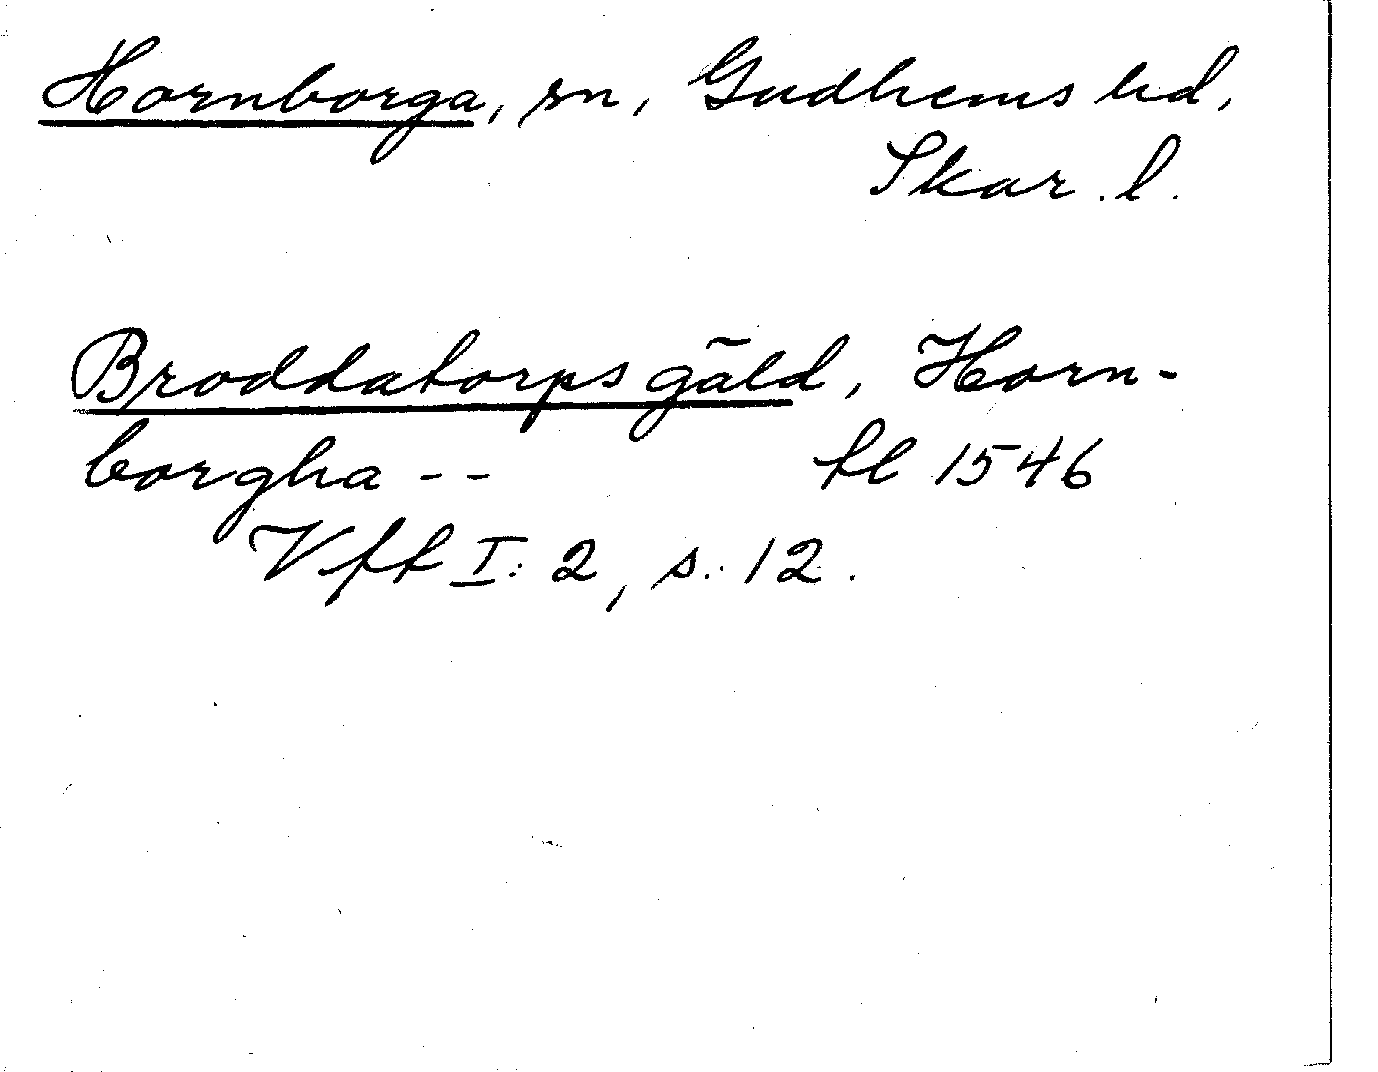 Hornborga, sn, Gudhems hd,
Skar. l.
Broddatorps gäld, Horn-
borgha - -  tl 1546
Vft I: 2, s. 12.